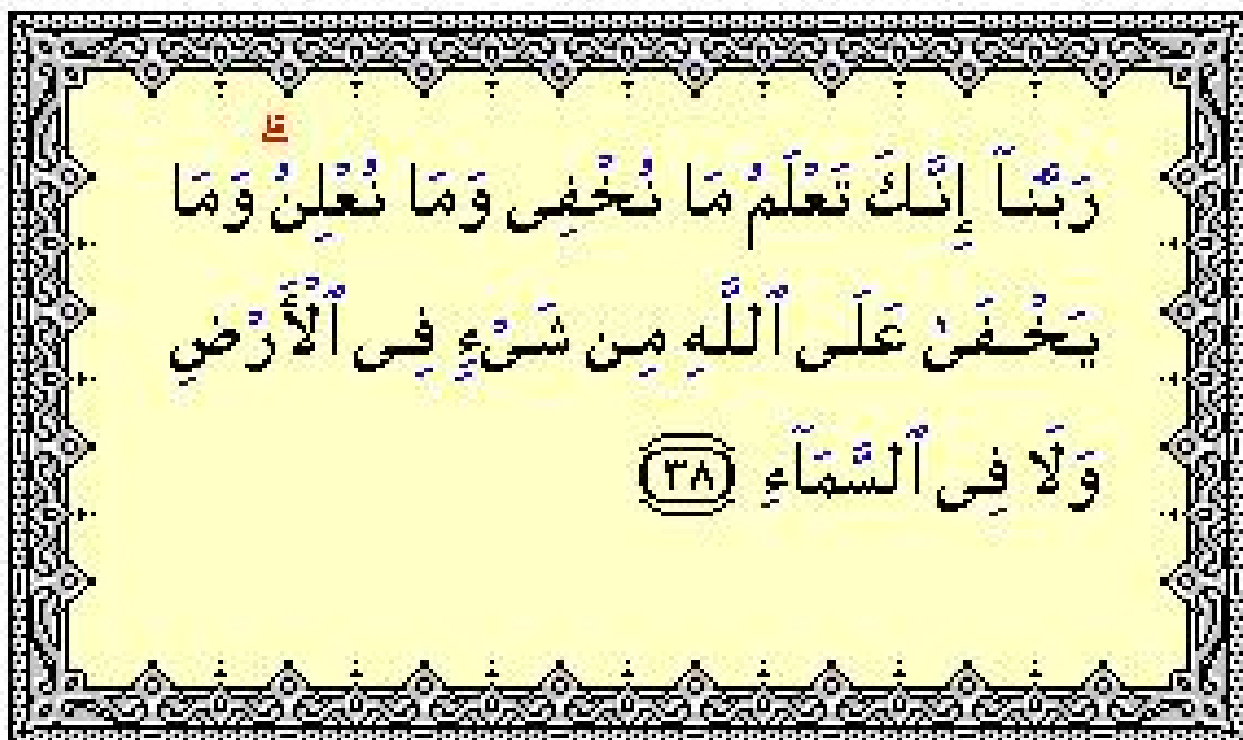 رَبَّنَآ إِنَّكَ تَعْلَمُ مَا نُخْفِى وَمَا نُعْلِنُ ۗ وَمَا
يَخْفَىٰ عَلَى ٱللَّهِ مِن شَىْءٍ فِى ٱلْأَرْضِ
وَلَا فِى ٱلسَّمَآءِ ٣٨